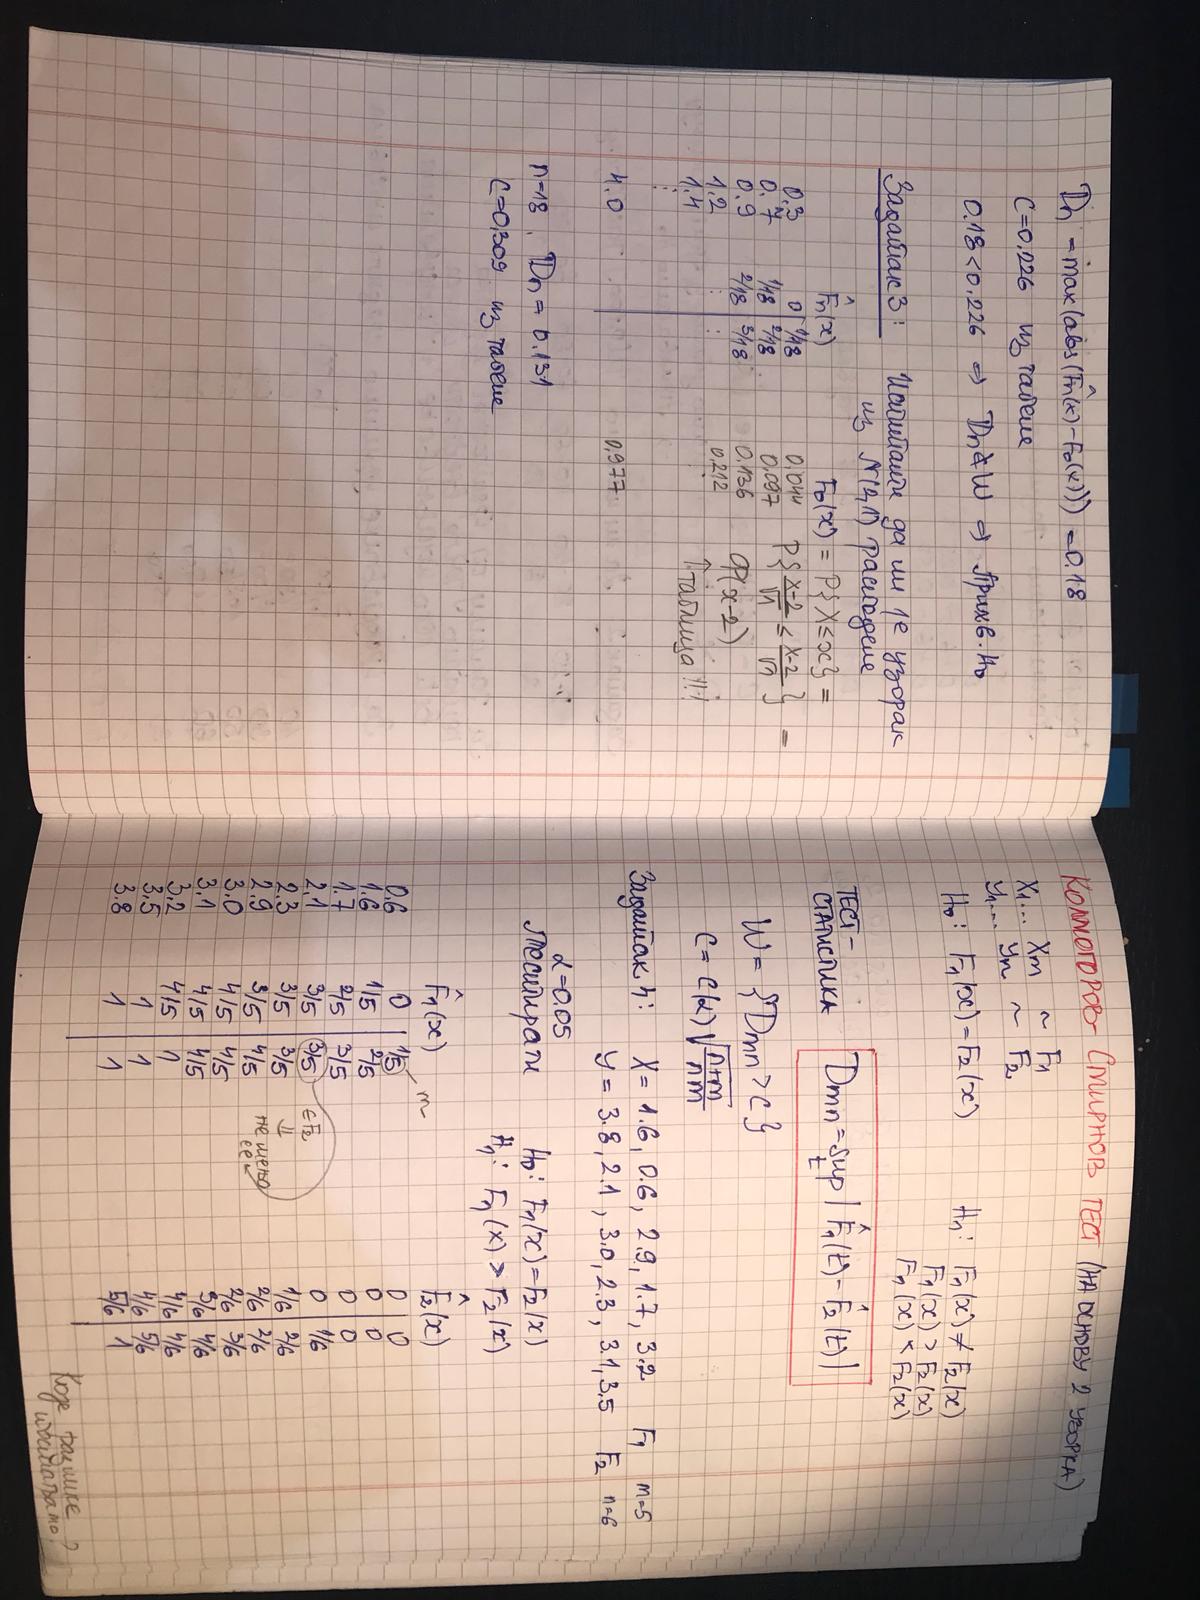 Dn = max(abs(F̂n(x)-F₀(x))) = 0.18
C=0.226 из табеле
0.18<0.226 ⇒ Dn∉W ⇒ Прихв. H₀
Задатак 3: Испитати да ли је узорак
из N(2,1) расподеле
F̂n(x) F₀(x) = P{X≤x} =
0.3 0 1/18 0.044 P{(X-2)/√1 ≤ (x-2)/√1} =
0.7 1/18 2/18 0.097
0.9 2/18 3/18 0.136 Φ(x-2)
1.2 ⋮ ⋮ 0.212
1.4 ↑ таблица 11.1
⋮
4.0 0.977
n=18, Dn = 0.131
C=0.309 из табеле
КОЛМОГОРОВ-СМИРНОВ ТЕСТ (НА ОСНОВУ 2 УЗОРКА)
X₁... Xm ~ F₁
Y₁... Yn ~ F₂
H₀: F₁(x) = F₂(x) H₁: F₁(x) ≠ F₂(x)
F₁(x) > F₂(x)
F₁(x) < F₂(x)
ТЕСТ-
СТАТИСТИКА Dmn = sup | F̂₁(t) - F̂₂(t) |
t
W = {Dmn > C}
C = C(α) √((n+m)/(nm))
Задатак 4: X = 1.6, 0.6, 2.9, 1.7, 3.2 F₁ m=5
Y = 3.8, 2.1, 3.0, 2.3, 3.1, 3.5 F₂ n=6
α=0.05
Тестирати H₀: F₁(x) = F₂(x)
H₁: F₁(x) > F₂(x)
F̂₁(x) F̂₂(x)
0.6 0 1/5 m 0 0
1.6 1/5 2/5 0 0
1.7 2/5 3/5 0 0
2.1 3/5 3/5 0 1/6
2.3 3/5 3/5 1/6 2/6
2.9 3/5 4/5 2/6 2/6
3.0 4/5 4/5 2/6 3/6
3.1 4/5 4/5 3/6 4/6
3.2 4/5 1 4/6 4/6
3.5 1 1 4/6 5/6
3.8 1 1 5/6 1
∈F₂
⇓
не мења
се